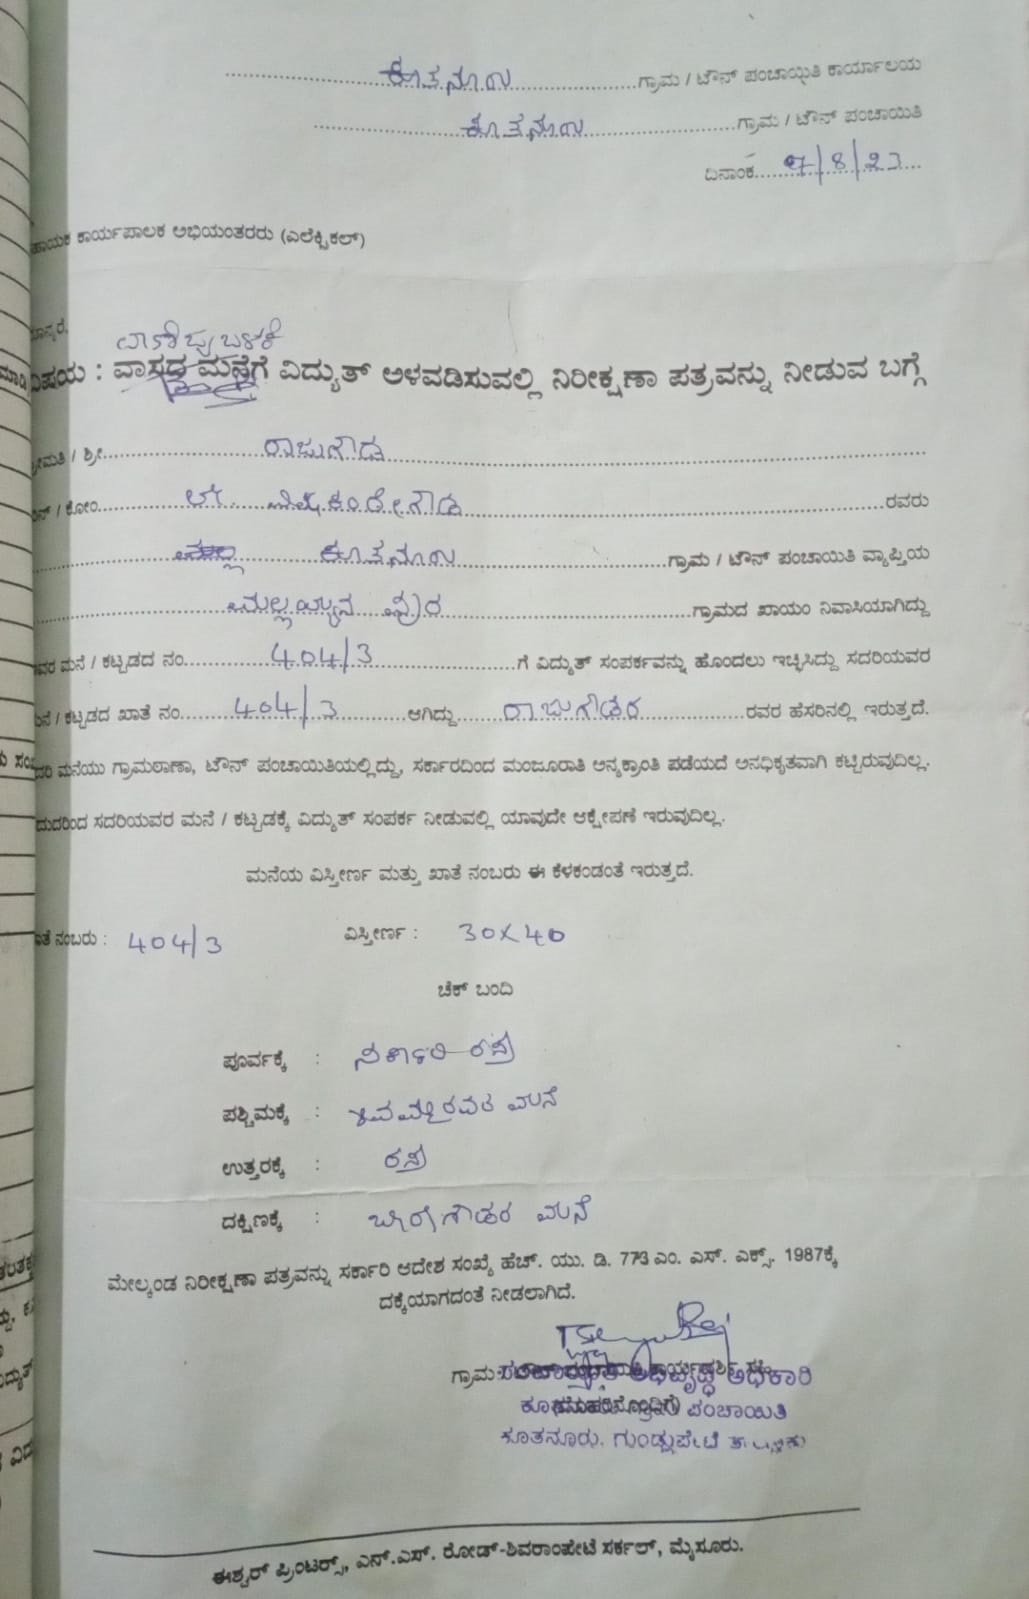 ಕೂತನೂರು ಗ್ರಾಮ / ಟೌನ್ ಪಂಚಾಯಿತಿ ಕಾರ್ಯಾಲಯ
ಕೂತನೂರು ಗ್ರಾಮ / ಟೌನ್ ಪಂಚಾಯಿತಿ
ದಿನಾಂಕ 7/8/23
ಕಾರ್ಯಪಾಲಕ ಅಭಿಯಂತರರು (ಎಲೆಕ್ಟ್ರಿಕಲ್)
ಬಳಕೆ
ವಿಷಯ : ವಾಸದ ಮನೆಗೆ ವಿದ್ಯುತ್ ಅಳವಡಿಸುವಲ್ಲಿ ನಿರೀಕ್ಷಣಾ ಪತ್ರವನ್ನು ನೀಡುವ ಬಗ್ಗೆ
/ ಶ್ರೀ ರಾಜುಗೌಡ
/ ಕೋಂ ಲೇ. ರವರು
ಕೂತನೂರು ಗ್ರಾಮ / ಟೌನ್ ಪಂಚಾಯಿತಿ ವ್ಯಾಪ್ತಿಯ
ಮಲ್ಲಯ್ಯನ ಪುರ ಗ್ರಾಮದ ಖಾಯಂ ನಿವಾಸಿಯಾಗಿದ್ದು
ಮನೆ / ಕಟ್ಟಡದ ನಂ. 404/3 ಗೆ ವಿದ್ಯುತ್ ಸಂಪರ್ಕವನ್ನು ಹೊಂದಲು ಇಚ್ಛಿಸಿದ್ದು ಸದರಿಯವರ
/ ಕಟ್ಟಡದ ಖಾತೆ ನಂ. 404/3 ಆಗಿದ್ದು ರಾಜುಗೌಡರ ರವರ ಹೆಸರಿನಲ್ಲಿ ಇರುತ್ತದೆ.
ಮನೆಯು ಗ್ರಾಮಠಾಣಾ, ಟೌನ್ ಪಂಚಾಯಿತಿಯಲ್ಲಿದ್ದು, ಸರ್ಕಾರದಿಂದ ಮಂಜೂರಾತಿ ಅನ್ಯಕ್ರಾಂತಿ ಪಡೆಯದೆ ಅನಧಿಕೃತವಾಗಿ ಕಟ್ಟಿರುವುದಿಲ್ಲ.
ಸದರಿಯವರ ಮನೆ / ಕಟ್ಟಡಕ್ಕೆ ವಿದ್ಯುತ್ ಸಂಪರ್ಕ ನೀಡುವಲ್ಲಿ ಯಾವುದೇ ಆಕ್ಷೇಪಣೆ ಇರುವುದಿಲ್ಲ.
ಮನೆಯ ವಿಸ್ತೀರ್ಣ ಮತ್ತು ಖಾತೆ ನಂಬರು ಈ ಕೆಳಕಂಡಂತೆ ಇರುತ್ತದೆ.
ನಂಬರು : 404/3 ವಿಸ್ತೀರ್ಣ : 30×40
ಚೆಕ್ ಬಂದಿ
ಪೂರ್ವಕ್ಕೆ : ಸರ್ಕಾರಿ ರಸ್ತೆ
ಪಶ್ಚಿಮಕ್ಕೆ : ಮನೆ
ಉತ್ತರಕ್ಕೆ : ರಸ್ತೆ
ದಕ್ಷಿಣಕ್ಕೆ : ಮನೆ
ಮೇಲ್ಕಂಡ ನಿರೀಕ್ಷಣಾ ಪತ್ರವನ್ನು ಸರ್ಕಾರಿ ಆದೇಶ ಸಂಖ್ಯೆ ಹೆಚ್. ಯು. ಡಿ. 773 ಎಂ. ಎಸ್. ಎಕ್ಸ್. 1987ಕ್ಕೆ
ದಕ್ಕೆಯಾಗದಂತೆ ನೀಡಲಾಗಿದೆ.
ಗ್ರಾಮ ಅಭಿವೃದ್ಧಿ ಅಧಿಕಾರಿ
ಪಂಚಾಯಿತಿ
ಕೂತನೂರು, ಗುಂಡ್ಲುಪೇಟೆ
ಈಶ್ವರ್ ಪ್ರಿಂಟರ್ಸ್, ಎನ್.ಎಸ್. ರೋಡ್-ಶಿವರಾಂಪೇಟೆ ಸರ್ಕಲ್, ಮೈಸೂರು.